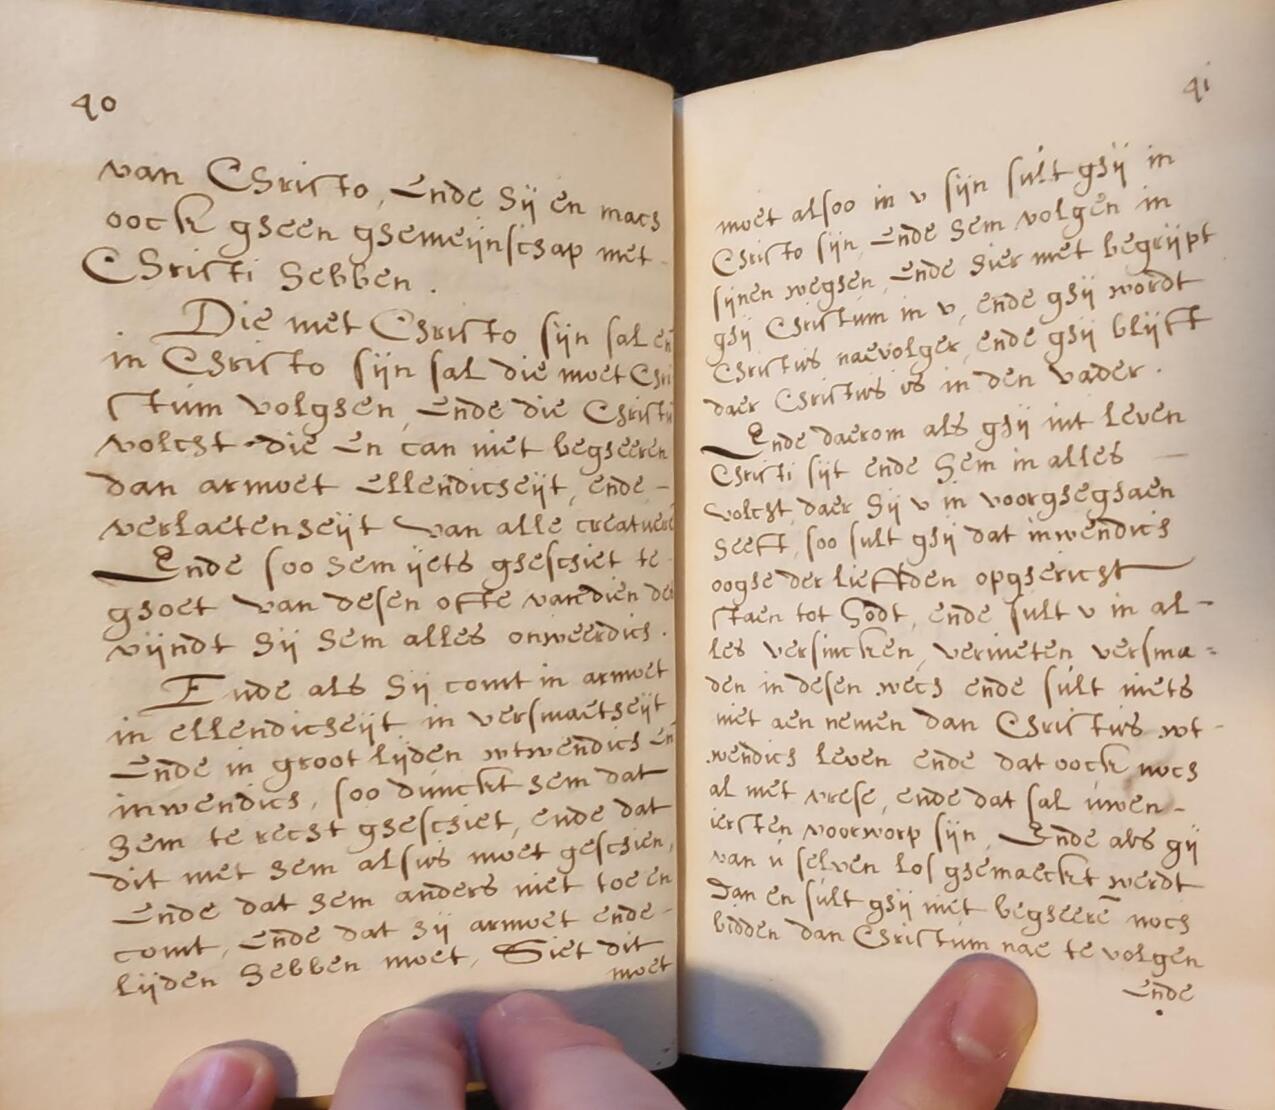 40
van Christo, Ende hij en mach
oock gheen ghemeijnschap met
Christi hebben.
Die met Christo sijn sal en
in Christo sijn sal die moet Chri
stum volghen, Ende die Christu
volcht die En can niet begheeren
dan armoet Ellendicheijt, ende -
verlaetenheijt van alle creature
Ende soo hem ijets gheschiet te
ghoet van desen ofte van dien de
vijndt hij hem alles onweerdich.
Ende als hij comt in armoet
in ellendicheijt, in versmaetheijt
Ende in groot lijden wtwendich en
inwendich, soo dunckt hem dat
hem te recht gheschiet, ende dat
dit met hem alsus moet geschien,
Ende dat hem anders niet toe en
comt, Ende dat hij armoet ende -
lijden hebben moet, Siet dit
moet
41
moet alsoo in v sijn sult ghij in
Christo sijn, Ende hem volgen in
sijnen weghen, Ende hier met begrijpt
ghij Christum in v, ende ghij wordt
Christus naevolger, ende ghij blijft
daer Christus is in den vader.
Ende daerom als ghij int leven
Christi sijt ende hem in alles -
volcht, daer hij v in voorghegaen
heeft, soo sult ghij dat inwendich
ooghe der liefften opghericht
staen tot Godt, ende sult v in al-
les versincken, vernieten, versma-
den in desen wech ende sult niets
niet aen nemen dan Christus wt-
wendich leven ende dat oock noch
al met vrese, ende dat sal uwen-
iersten voorworp sijn, Ende als gij
van u selven los ghemaeckt werdt
dan en sult ghij niet begheerē noch
bidden dan Christum nae te volgen
Ende